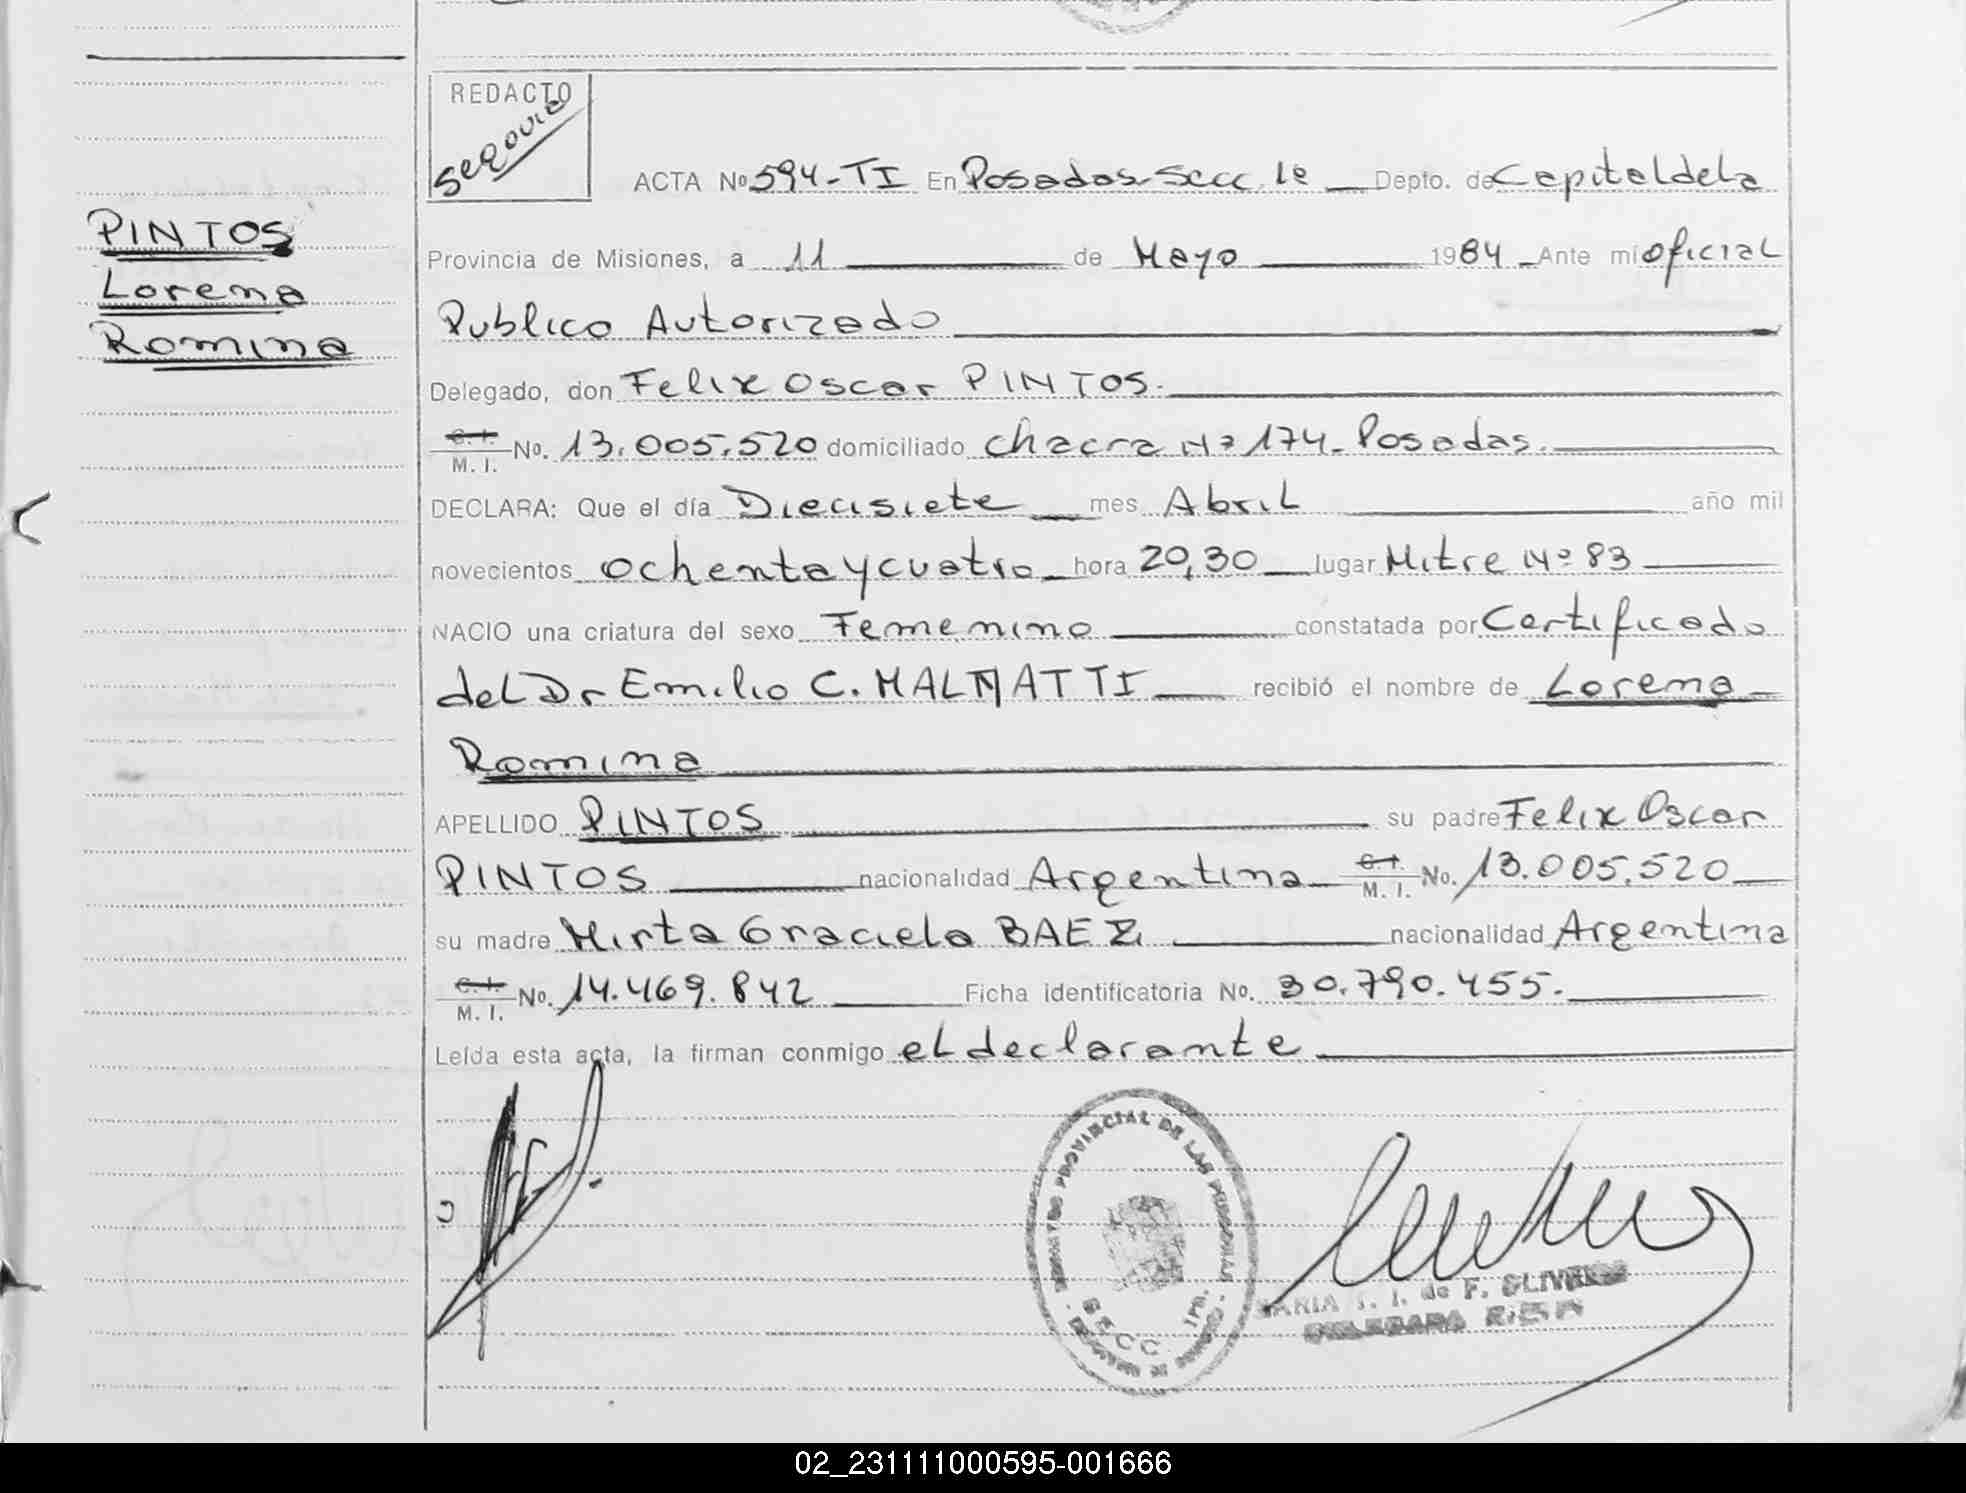 REDACTO
Segovia
ACTA No 594-TI En Posadas-Secc. 1e Depto. de Capital de la
PINTOS
Lorena
Romina
Provincia de Misiones, a 11 de Mayo 1984 Ante mi oficial
Publico Autorizado
Delegado, don Felix Oscar PINTOS.
C. I. M. I. No. 13.005.520 domiciliado chacra Nº 174- Posadas.
DECLARA: Que el día Diecisiete mes Abril año mil
novecientos ochenta y cuatro hora 20,30 lugar Mitre Nº 83
NACIO una criatura del sexo Femenino constatada por Certificado
del Dr Emilio C. MALMATTI recibió el nombre de Lorena
Romina
APELLIDO PINTOS su padre Felix Oscar
PINTOS nacionalidad Argentina C. I. M. I. No. 13.005.520
su madre Mirta Graciela BAEZ nacionalidad Argentina
C. I. M. I. No. 14.469.842 Ficha identificatoria No. 30.790.455.
Leída esta acta, la firman conmigo el declarante
PROVINCIAL DE LAS PERSONAS
MARIA T. I. de F. OLIVERA
DELEGADA
02_231111000595-001666